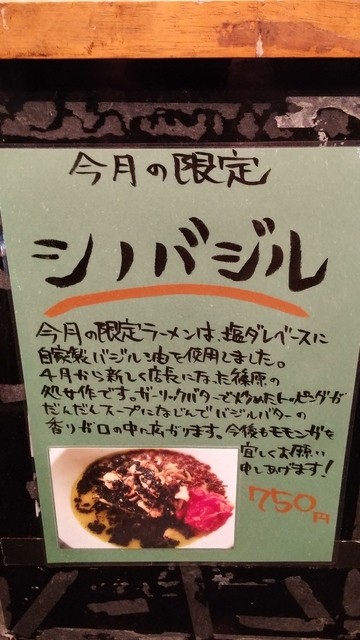 今月の限定
シノバジル
今月の限定ラーメンは、塩ダレベースに
自家製バジル油を使用しました。
4月から新しく店長になった篠原の
処女作です。ガーリックバターで炒めたトッピングが
だんだんスープになじんでバジルバターの
香りがロの中に広がります。今後もモモンガを
宜しくお願い
申しあげます!
750円